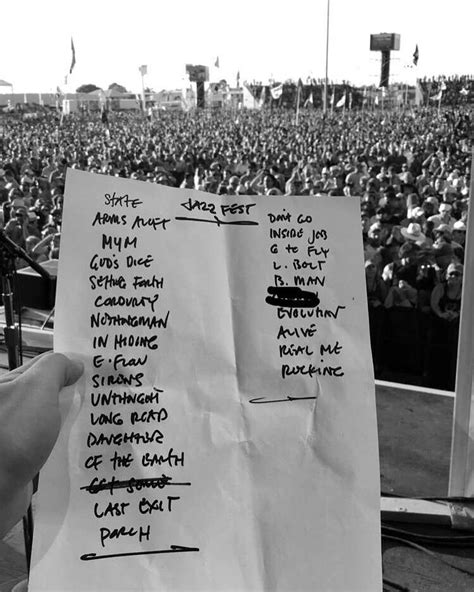 STATE
JAZZ FEST
ARMS ALOFT
MYM
GOD'S DICE
SETTING FORTH
CORDUROY
NOTHINGMAN
IN HIDING
E. FLOW
SIRENS
UNTHOUGHT
LONG ROAD
DAUGHTER
OF THE EARTH
GET SOME
LAST EXIT
PORCH
DON'T GO
INSIDE JOB
G TO FLY
L. BOLT
B. MAN
EVOLUTION
ALIVE
REAL ME
ROCKING